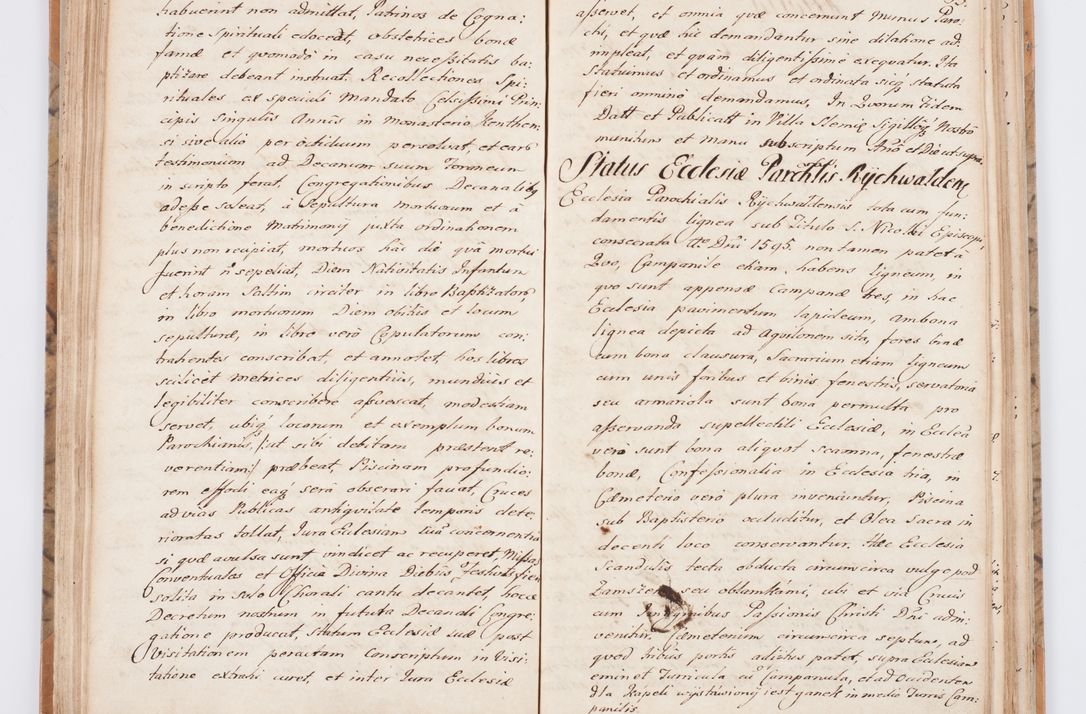 habuerint non admittat, Patrinos de Cogna:
tione spirituali edoceat, obstetrices bonæ
famæ et quomodo in casu necessitatis ba:
ptizare debeant instruat. Recollectiones Spi:
rituales ex speciali Mandato Celsissimi Prin:
cipis singulis Annis in Monasterio Kenthen:
si sive alio per octiduum persolvat, et earū
testimonium ad Decanum suum Foraneum
in scripto ferat, Congregationibus Decanalibꝫ
adesse soleat, à sepultura mortuorum et à
benedictione Matrimonij juxta ordinationem
plus non recipiat, mortuos hac die quâ mortui
fuerint ñ sepeliat, Diem Nativitatis Infantum
et horam saltim circiter in libro Baptizatorū,
in libro mortuorum Diem obitûs et locum
sepulturæ, in libro verò Copulatorum con:
trahentes conscribat, et annotet, hos libros
scilicet metrices diligentiùs, mundiùs et
legibiliter conscribere assvescat, modestiam
servet, ubiqꝫ locorum et exemplum bonum
Parochianis, (ut sibi debitam præstent re:
verentiam) præbeat, Piscinam profundio:
rem effodi eaqꝫ serâ obserari faciat, Cruces
ad vias Publicas antiquitate temporis dete:
rioratas tollat, Jura Ecclesiam suā concernentia
si quæ avulsa sunt vindicet ac recuperet, Missas
Conventuales et Officia Divina Diebus Festivis fieri
solita in solo Chorali cantu decantet, hocce
Decretum nostrum in futura Decanali Congre:
gatione producat, statum Ecclesiæ suæ post
Visitationem peractam Conscriptum in Visi:
tatione extrahi curet, et inter Jura Ecclesiæ
asservet, et omnia quæ concernunt Munus Paro:
chi, et quæ hic demandantur sine dilatione ad:
impleat, et quàm diligentissimè exequatur. Ita
statuimus et ordinamus et ordinata sicqꝫ statuta
fieri omninò demandamus, In Quorum Fidem
Datt et Publicatt in Villa Slemię Sigillōqꝫ Nostrō
munitum et Manu subscriptum Añō et Die ut supra.
Status Ecclesiæ Parchlis Rÿchwaldenę
Ecclesia Parochialis Rÿchwaldensis tota cum fun:
damentis lignea sub Titulo S. Nicolai Episcopi,
consecrata Añō Dñi 1595. non tamen patet à
Quo, Campanile etiam habens ligneum, in
quo sunt appensæ Campanæ tres, in hac
Ecclesia pavimentum lapideum, ambona
lignea depicta ad Aquilonem sita, fores binæ
cum bona clausura, Sacrarium etiam ligneum
cum unis foribus et binis fenestris, servatoria
seu armariola sunt bona permulta pro
asservanda supellectili Ecclesiæ, in Ecclēa
verò sunt bona aliquot scamna, fenestræ
bonæ, Confessionalia in Ecclesia tria, in
Cæmeterio verò plura inveniuntur, Piscina
sub Baptisterio ocluditur, et Olea Sacra in
decenti loco conservantur. Hæc Ecclesia
Scandulis tecta obducta circumcirca vulgo pod
seu ubi et via Crucis
cum Imaginibus Passionis Christi Dñi adin:
venitur. Cæmeterium circumcirca septum, ad
quod tribus portis aditus patet, supra Ecclesiam
eminet Turricula cū Campanula, et ad Occidentem
dla Kapeli wystawiony jest ganek in medio Turris Cam:
panilis.